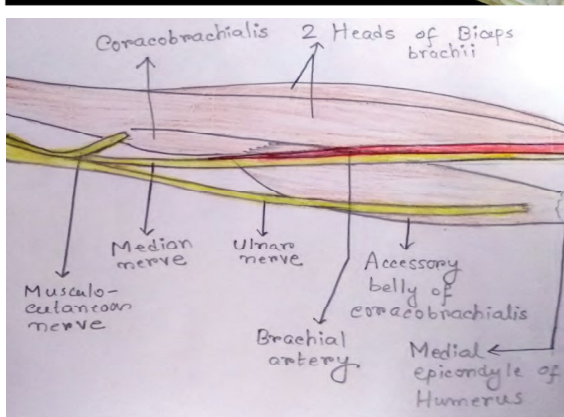 Coracobrachialis
2 Heads of Biceps
brachii
Median
nerve
Ulnar
nerve
Musculo-
cutaneous
nerve
Accessory
belly of
coracobrachialis
Brachial
artery
Medial
epicondyle of
Humerus